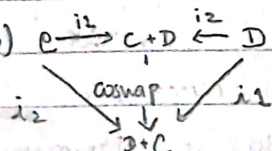 ) C i2 C + D i2 D
coswap
i2 i1
D+C